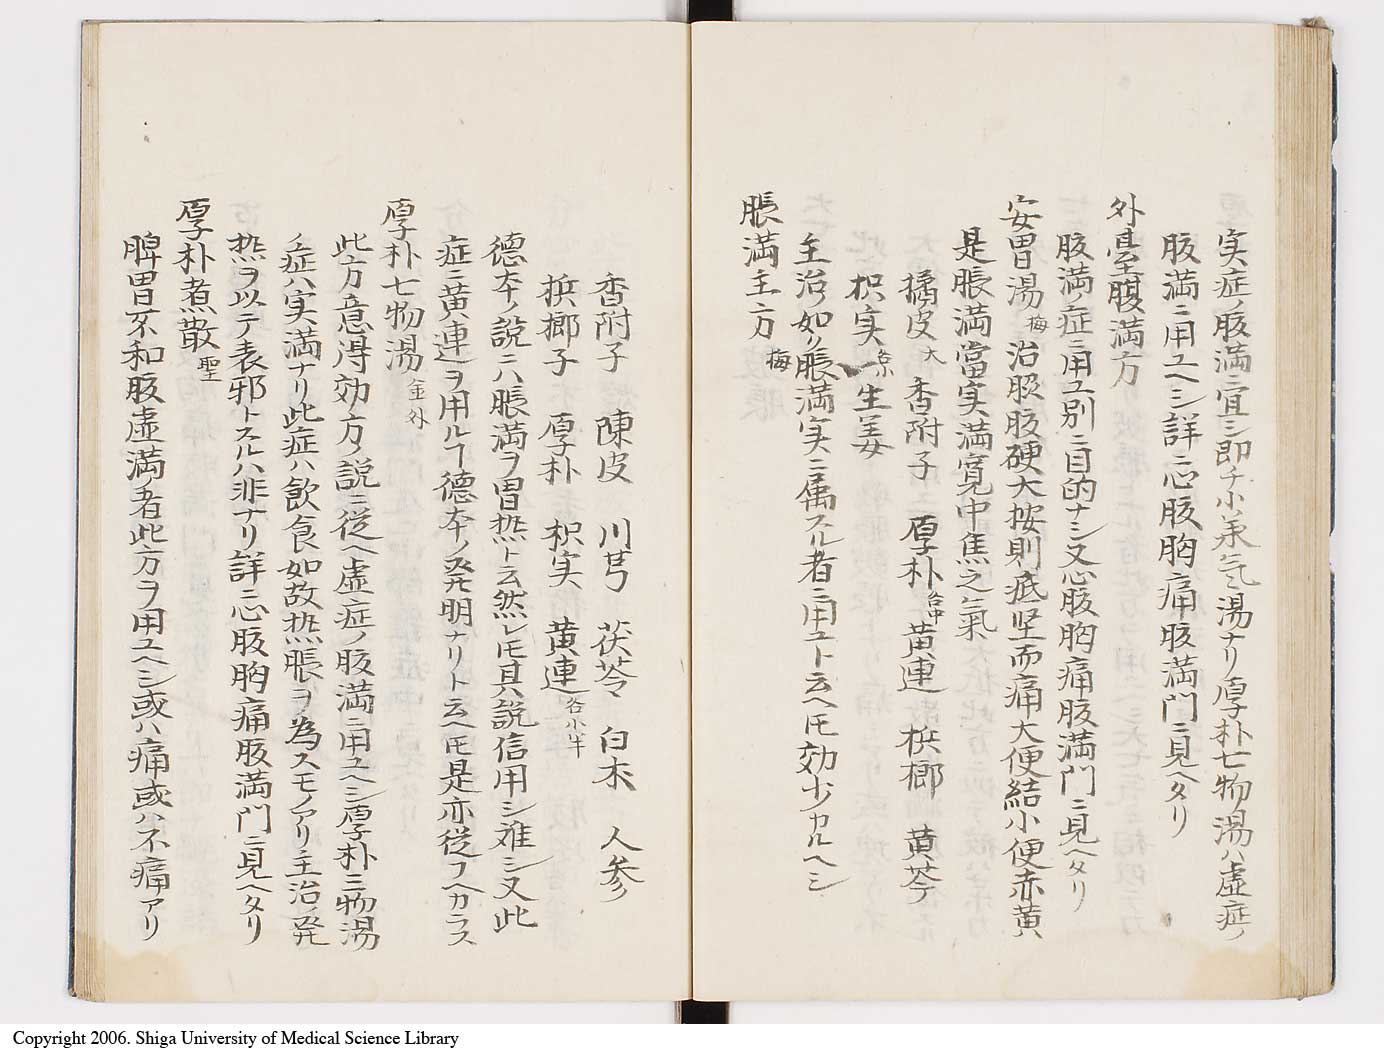 実症ノ腹満ニ宜シ即チ小承气湯ナリ厚朴七物湯ハ虚症ノ
腹満ニ用ユヘシ詳ニ心腹胸痛腹満門ニ見ヘタリ
外臺腹満方
腹満ノ症ニ用ユ別ニ目的ナシ又心腹胸痛腹満門ニ見ヘタリ
安胃湯 梅 治腹脹硬大按則底坚而痛大便結小便赤黄
是脹満當実満寛中焦之氣
橘皮大 香附子 厚朴各中 黄連 梹榔 黄芩
枳実各小 生姜
主治如ク脹満実ニ属スル者ニ用ユト云ヘ𪜈効少カルヘシ
脹満主方 梅
香附子 陳皮 川芎 茯苓 白朮 人参
梹榔子 厚朴 枳実 黄連各小半
德本ノ説ニハ脹満ヲ胃热ト云然レ𪜈其説信用シ难シ又此
症ニ黄連ヲ用ルヿ德本ノ発明ナリト云ヘ𪜈是亦従フヘカラス
厚朴七物湯 金 外
此方意得効方ノ説ニ従ヘ虚症ノ腹満ニ用ユヘシ厚朴三物湯
ノ症ハ実満ナリ此症ハ飲食如故热脹ヲ為スモノアリ主治ノ発
热ヲ以テ表邪トスルハ非ナリ詳ニ心腹胸痛腹満門ニ見ヘタリ
厚朴煮散 聖
脾胃不和腹虚満ノ者此方ヲ用ユヘシ或ハ痛或ハ不痛アリ
Copyright 2006. Shiga University of Medical Science Library